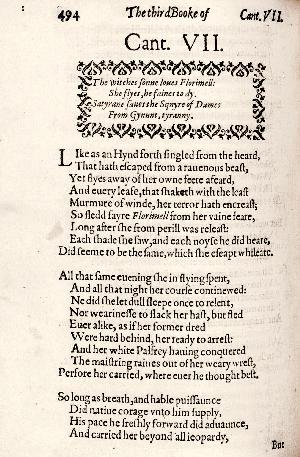 494 The third Booke of Cant. VII.
Cant. VII.
The witches sonne loues Florimell:
She flyes, he faines to dy.
Satyrane saues the Squyre of Dames
From Gyaunts tyranny.
LIke as an Hynd forth singled from the heard,
That hath escaped from a rauenous beast,
Yet flyes away of her owne feete afeard,
And euery leafe, that shaketh with the least
Murmure of winde, her terror hath encreast;
So fledd fayre Florimell from her vaine feare,
Long after she from perill was releast:
Each shade she saw, and each noyse she did heare,
Did seeme to be the same, which she escapt whileare.
All that same euening she in flying spent,
And all that night her course continewed:
Ne did she let dull sleepe once to relent,
Nor wearinesse to slack her hast, but fled
Euer alike, as if her former dred
Were hard behind, her ready to arrest:
And her white Palfrey hauing conquered
The maistring raines out of her weary wrest,
Perforce her carried, where euer he thought best.
So long as breath, and hable puissaunce
Did natiue corage vnto him supply,
His pace he freshly forward did aduaunce,
And carried her beyond all ieopardy,
But